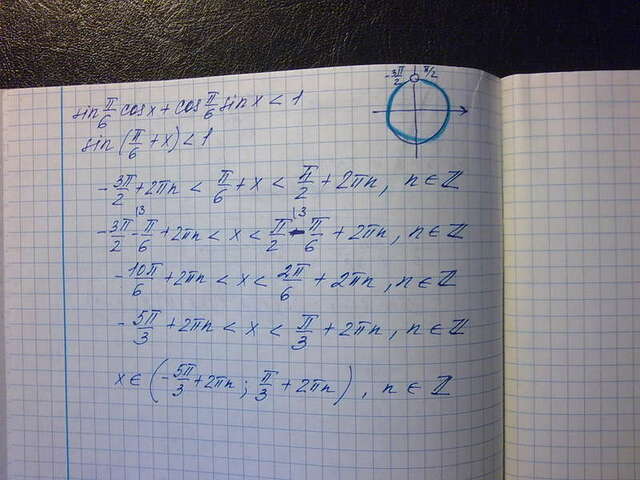 -3π/2 π/2
sin π/6 cos x + cos π/6 sin x < 1
sin (π/6 + x) < 1
-3π/2 + 2πn < π/6 + x < π/2 + 2πn, n ∈ ℤ
-3π/2 - π/6 + 2πn < x < π/2 |3 - π/6 + 2πn, n ∈ ℤ
-10π/6 + 2πn < x < 2π/6 + 2πn, n ∈ ℤ
-5π/3 + 2πn < x < π/3 + 2πn, n ∈ ℤ
x ∈ (-5π/3 + 2πn; π/3 + 2πn), n ∈ ℤ